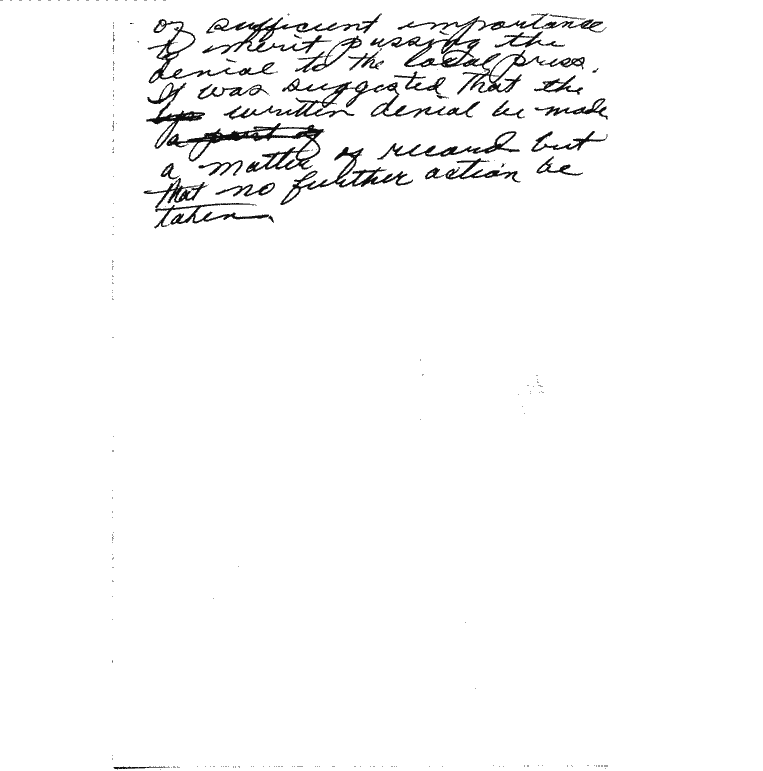 of sufficient importance
to merit passing the
denial to the local press.
It was suggested that the
written denial be made
a part of
a matter of record but
that no further action be
taken.